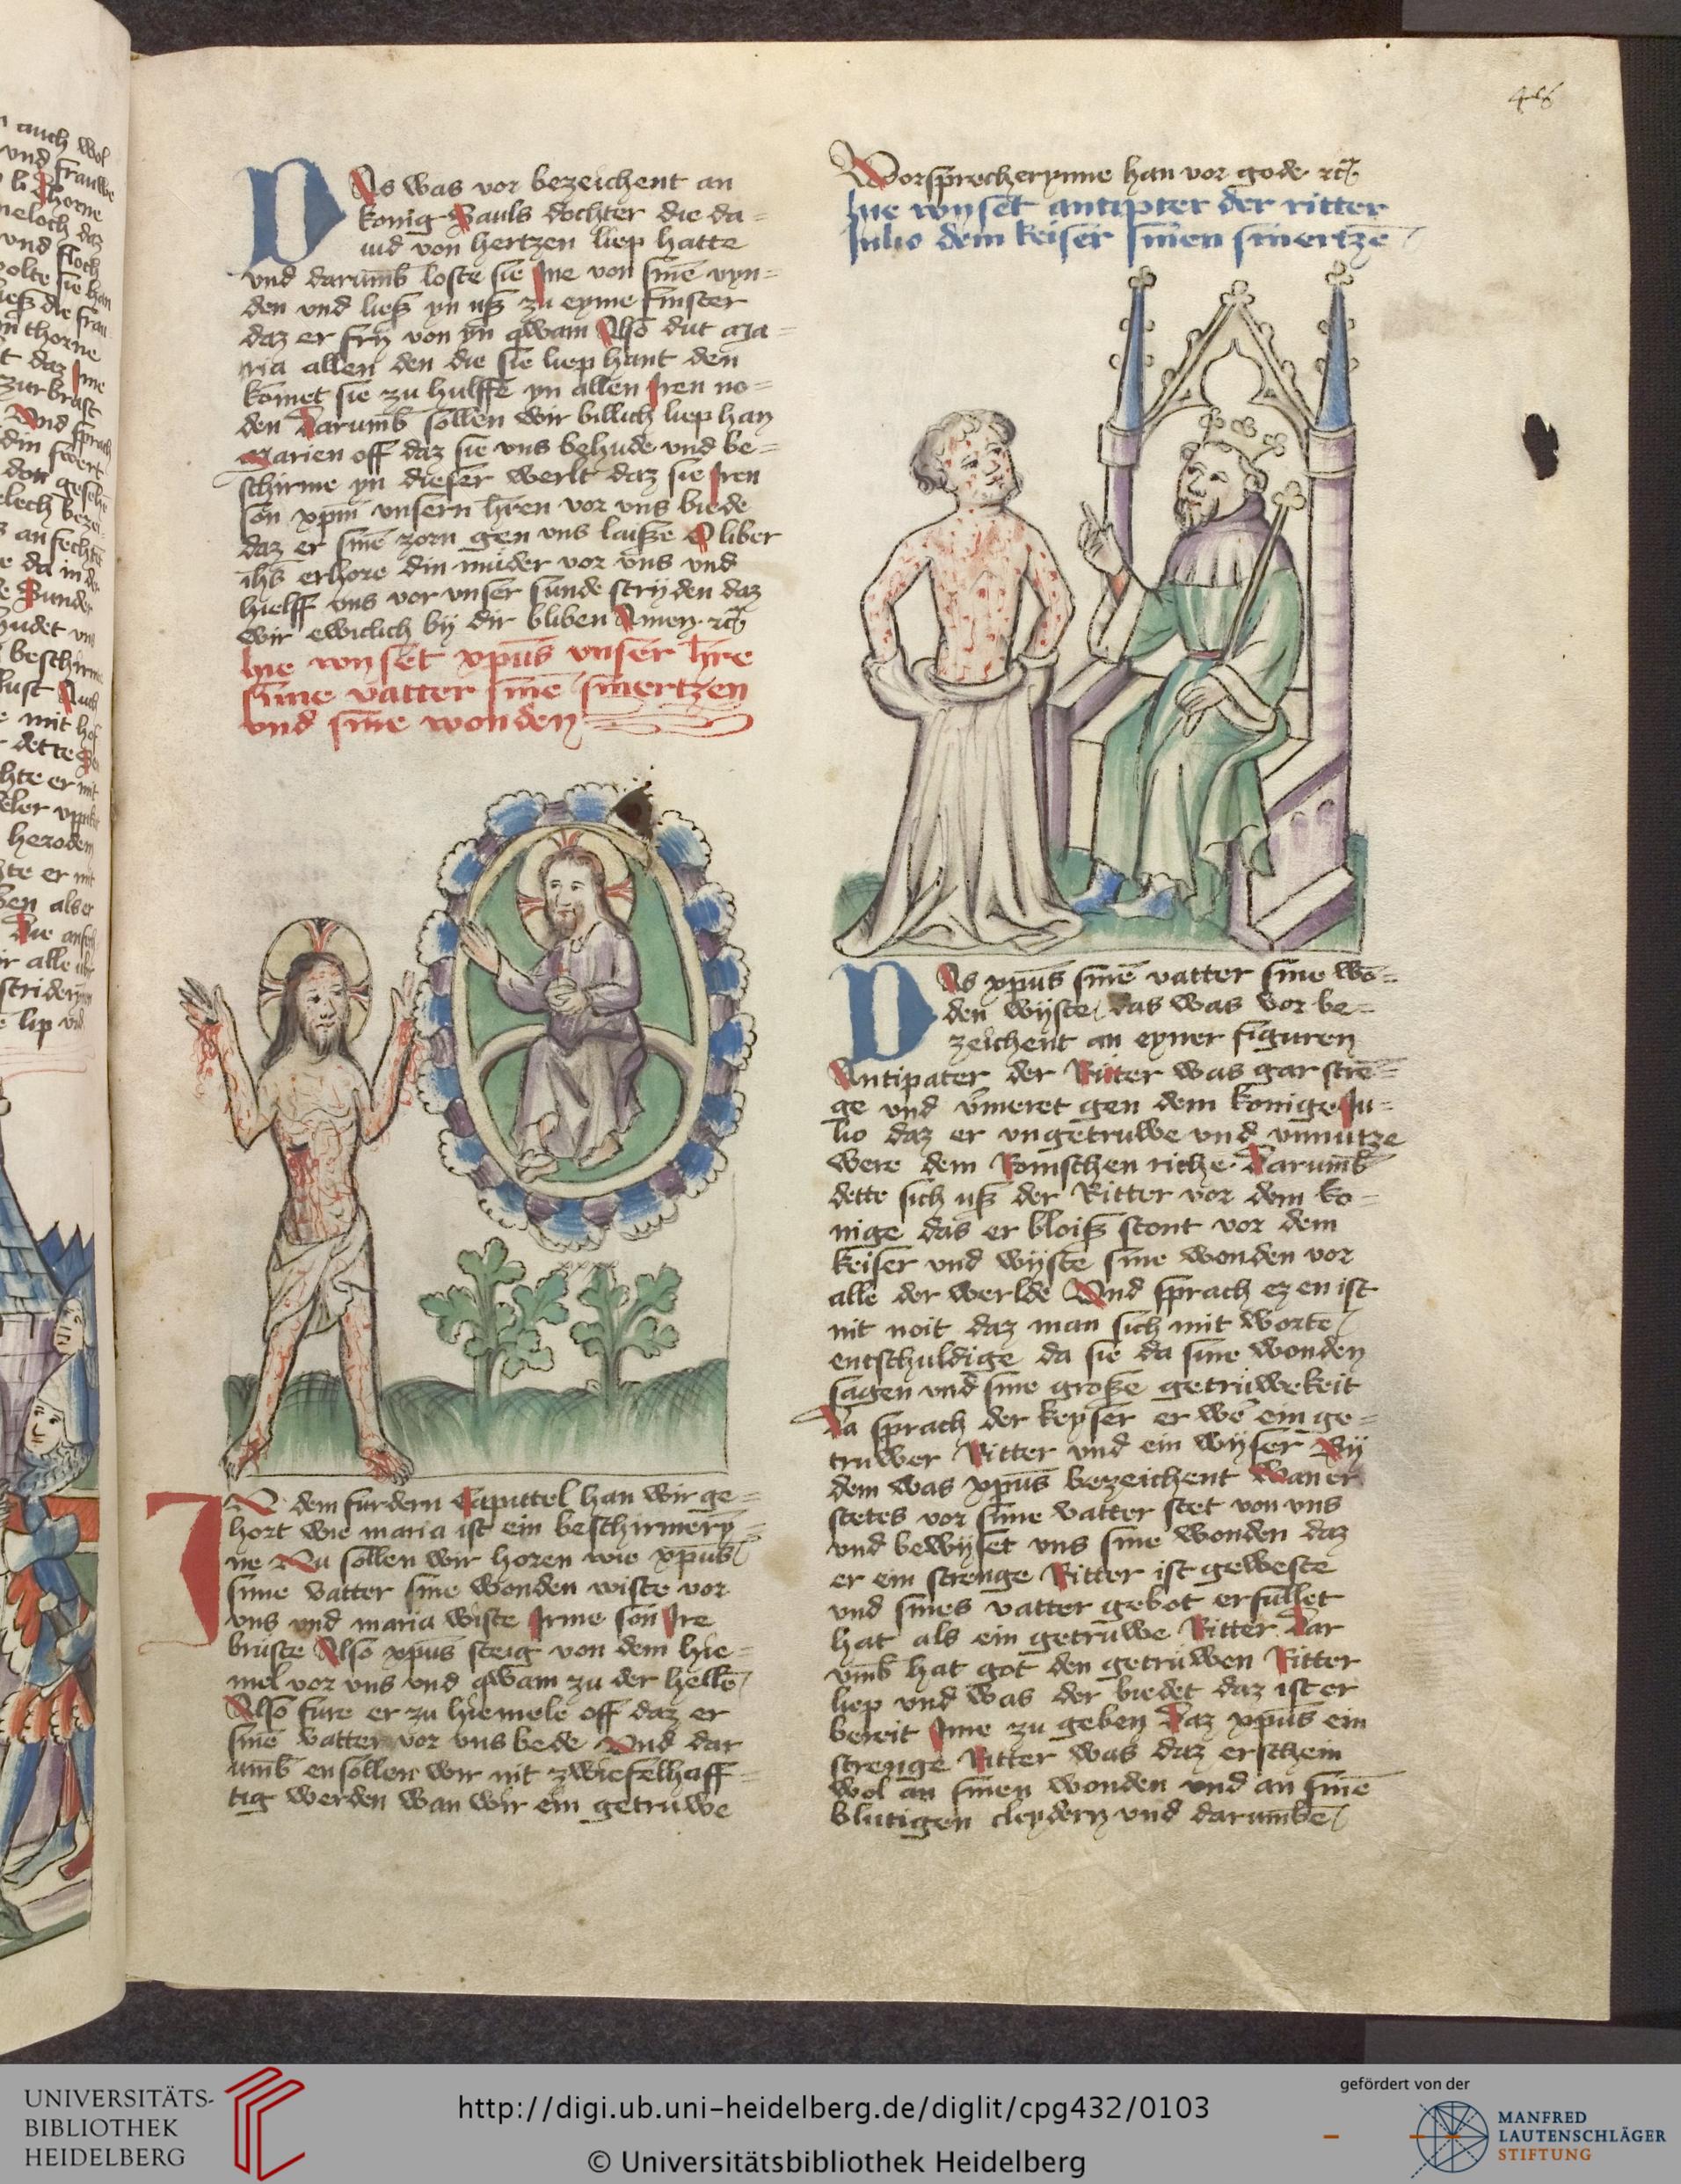 Das was vor bezeichent an
konig Sauls dochter die da=
uid von hertzen liep hatte
vnd darumb loste sie Jne von sinē vyn=
den vnd ließ yn uß zu eyme finster
daz er fry von yn qwam Also dut ma=
ria allen den die sie liep hant den
komet sie zu hulffe yn allen Jren no=
den Darumb sollen wir billich liep han
Marien off daz sie vns behude vnd be=
schirme yn dieser werlt daz sie Jren
son xpm̄ vnsern h̄ren vor vns biede
daz er sinē zorn gen vns laiße O liber
ih̄s erhore din muder vor vns vnd
hielff vns vor vnser sunde stryden daz
wir ewiclich by dir bliben Amen
hie wyset xpūs vnser h̄re
sime vatter sinē smertzen
vnd sine wonden
JN dem furdern Caputtel han wir ge=
hort wie maria ist ein beschirmery=
ne Nu sollen wir horen wie xpūs
sime vatter sine wonden wiste vor
vns vnd maria wiste Jrme son Jre
bruste Also xpūs steig von dem hie=
mel vor vns vnd qwam zu der hellē
Also fure er zu hiemele off daz er
sinē vatter vor vns bede Vnd dar
umb ensollen wir nit zwiefelhaff=
tig werden wan wir ein getruwe
Vorsprecherynne han vor gode
hie wyset antipter der ritter
Julio dem keiser sinen smertzē
Das xpūs sinē vatter sine wō=
den wyste das was vor be=
zeichent an eyner figuren
Antipater der Ritter was gar strē=
ge vnd v̄meret gen dem konige Ju=
lio daz er vngetruwe vnd vnnutze
were dem Romschen riche Darumb
dette sich uß der Ritter vor dem ko=
nige das er bloiß stont vor dem
keiser vnd wyste sine wonden vor
alle der werlde Vnd sprach ez en ist
nit noit daz man sich mit wortē
entschuldige da sie da sine wonden
sagen vnd sine große getruwekeit
Da sprach der keyser er wē ein ge=
truwer Ritter vnd ein wyser By
dem was xpūs bezeichent wan er
stetes vor sime vatter stet von vns
vnd bewyset vns sine wonden daz
er ein strenge Ritter ist geweste
vnd sines vatter gebot erfullet
hat als ein getruwe Ritter Dar
vmb hat got den getruwen Ritter
liep vnd was der biedet daz ist er
bereit Jme zu geben Daz xpūs ein
strenge Ritter was daz erschein
wol an sinen wonden vnd an sinē
blutigen cleydern vnd darumbē
UNIVERSITÄTS-
BIBLIOTHEK
HEIDELBERG
http://digi.ub.uni-heidelberg.de/diglit/cpg432/0103
© Universitätsbibliothek Heidelberg
gefördert von der
MANFRED
LAUTENSCHLÄGER
STIFTUNG